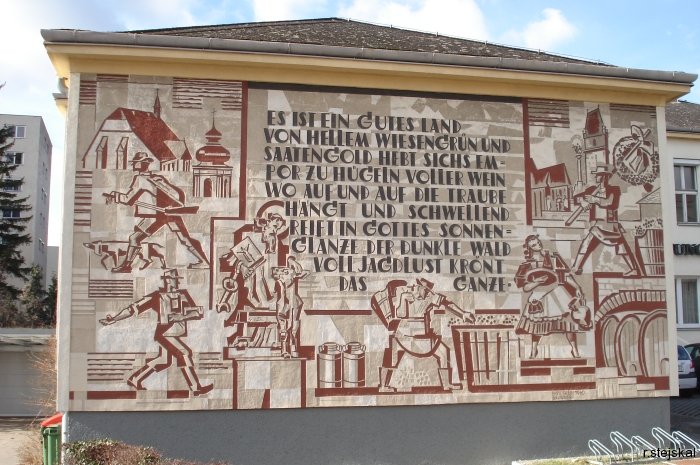 ES IST EIN GUTES LAND
VON HELLEM WIESENGRÜN UND
SAATENGOLD HEBT SICHS EM-
POR ZU HÜGELN VOLLER WEIN
WO AUF UND AUF DIE TRAUBE
HÄNGT UND SCHWELLEND
REIFT IN GOTTES SONNEN=
GLANZE DER DUNKLE WALD
VOLL JAGDLUST KRÖNT
DAS GANZE.
r.stejskal